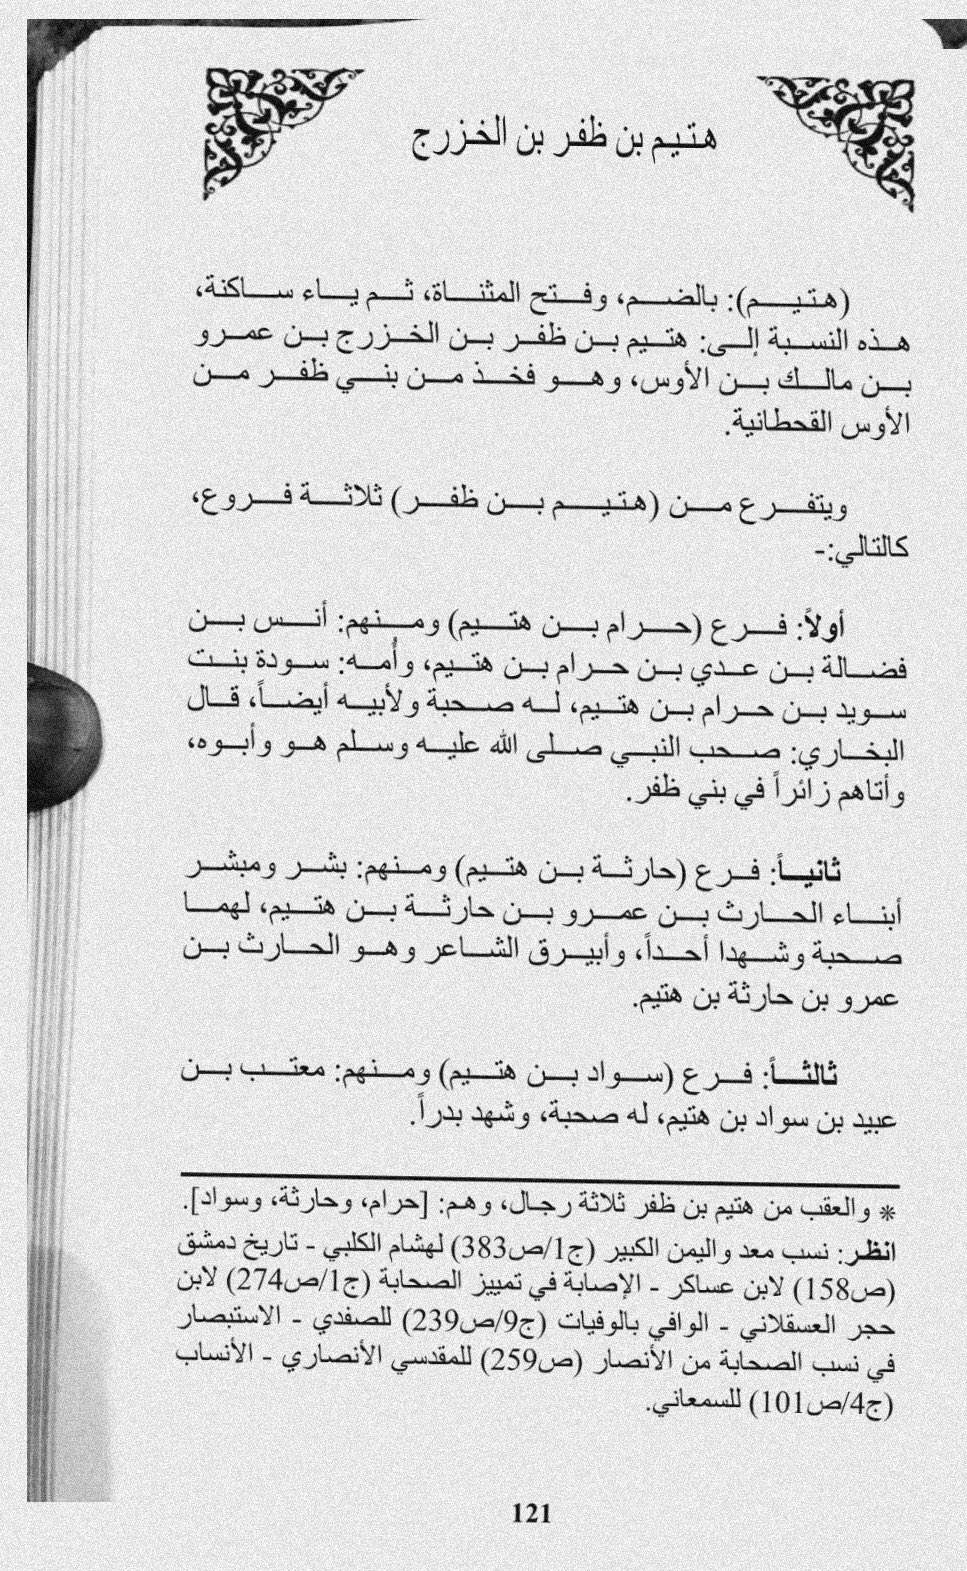 هتيم بن ظفر بن الخزرج
(هتيم): بالضم، وفتح المثناة، ثم ياء ساكنة،
هذه النسبة إلى: هتيم بن ظفر بن الخزرج بن عمرو
بن مالك بن الأوس، وهو فخذ من بني ظفر من
الأوس القحطانية.
ويتفرع من (هتيم بن ظفر) ثلاثة فروع،
كالتالي:-
أولاً: فرع (حرام بن هتيم) ومنهم: أنس بن
فضالة بن عدي بن حرام بن هتيم، وأُمه: سودة بنت
سويد بن حرام بن هتيم، له صحبة ولأبيه أيضاً، قال
البخاري: صحب النبي صلى الله عليه وسلم هو وأبوه،
وأتاهم زائراً في بني ظفر.
ثانياً: فرع (حارثة بن هتيم) ومنهم: بشر ومبشر
أبناء الحارث بن عمرو بن حارثة بن هتيم، لهما
صحبة وشهدا أحداً، وأبيرق الشاعر وهو الحارث بن
عمرو بن حارثة بن هتيم.
ثالثاً: فرع (سواد بن هتيم) ومنهم: معتب بن
عبيد بن سواد بن هتيم، له صحبة، وشهد بدراً.
* والعقب من هتيم بن ظفر ثلاثة رجال، وهم: [حرام، وحارثة، وسواد].
انظر: نسب معد واليمن الكبير (ج1/ص383) لهشام الكلبي - تاريخ دمشق
(ص158) لابن عساكر - الإصابة في تمييز الصحابة (ج1/ص274) لابن
حجر العسقلاني - الوافي بالوفيات (ج9/ص239) للصفدي - الاستبصار
في نسب الصحابة من الأنصار (ص259) للمقدسي الأنصاري - الأنساب
(ج4/ص101) للسمعاني.
121